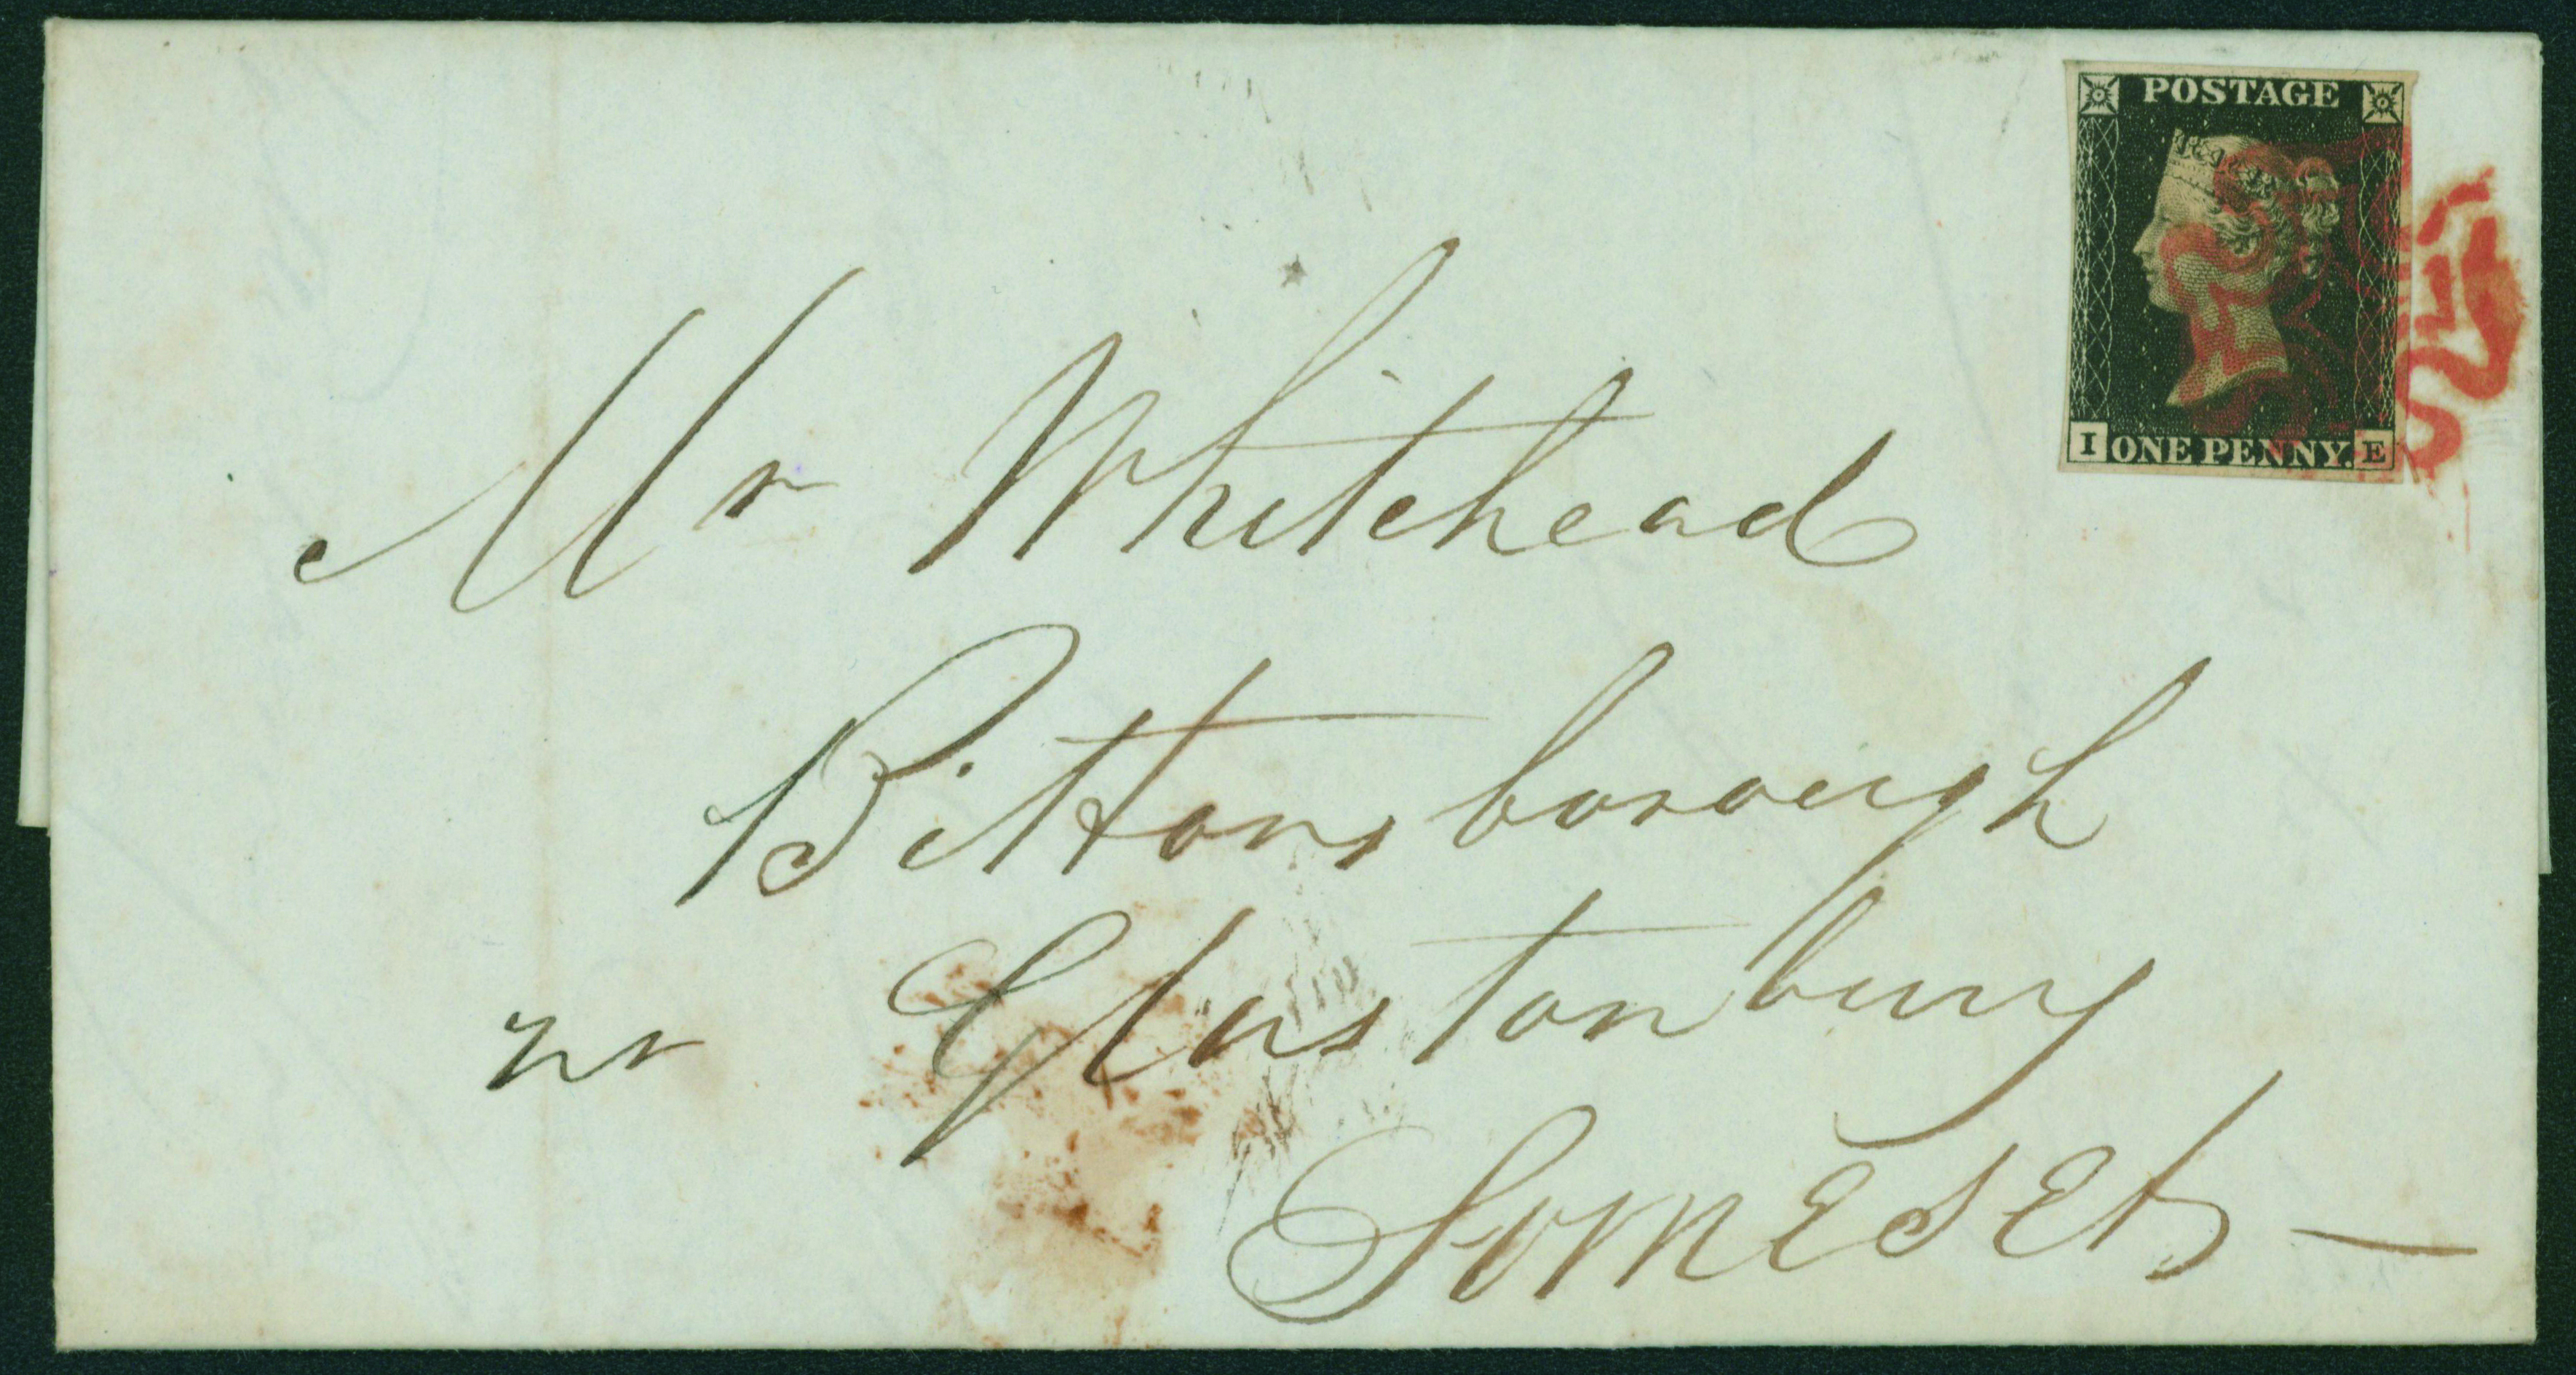 POSTAGE
I ONE PENNY. E
Mr Whitehead
Bittonsborough
nr Glastonbury
Somerset —